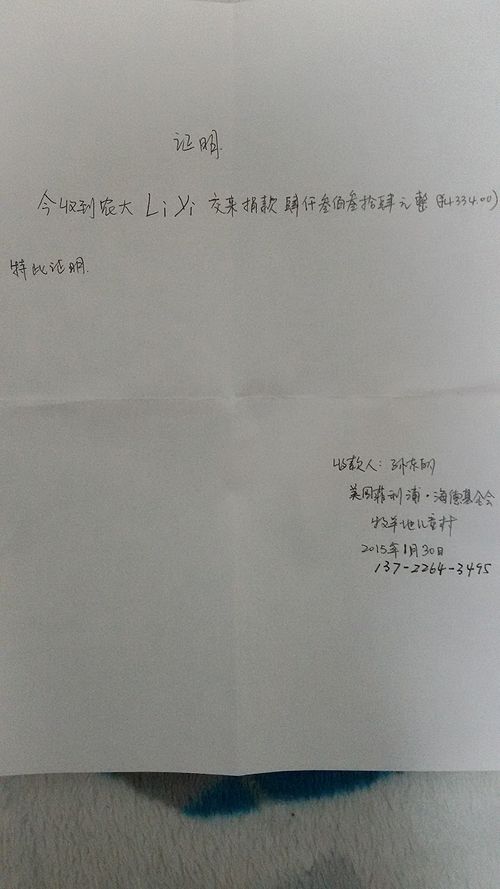 证明.
今收到农大 Li Yi 交来捐款肆仟叁佰叁拾肆元整(¥4334.00)
特此证明.
收款人: 孙东明
英国菲利浦·海德基金会
牧羊地儿童村
2015年1月30日
137-2264-3495